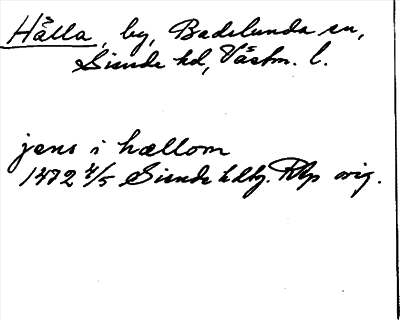 Hälla, by, Badelunda sn,
Siende hd, Västm. l.
jens i hællom
1482 4/5 Siende hdbg. RAp orig.